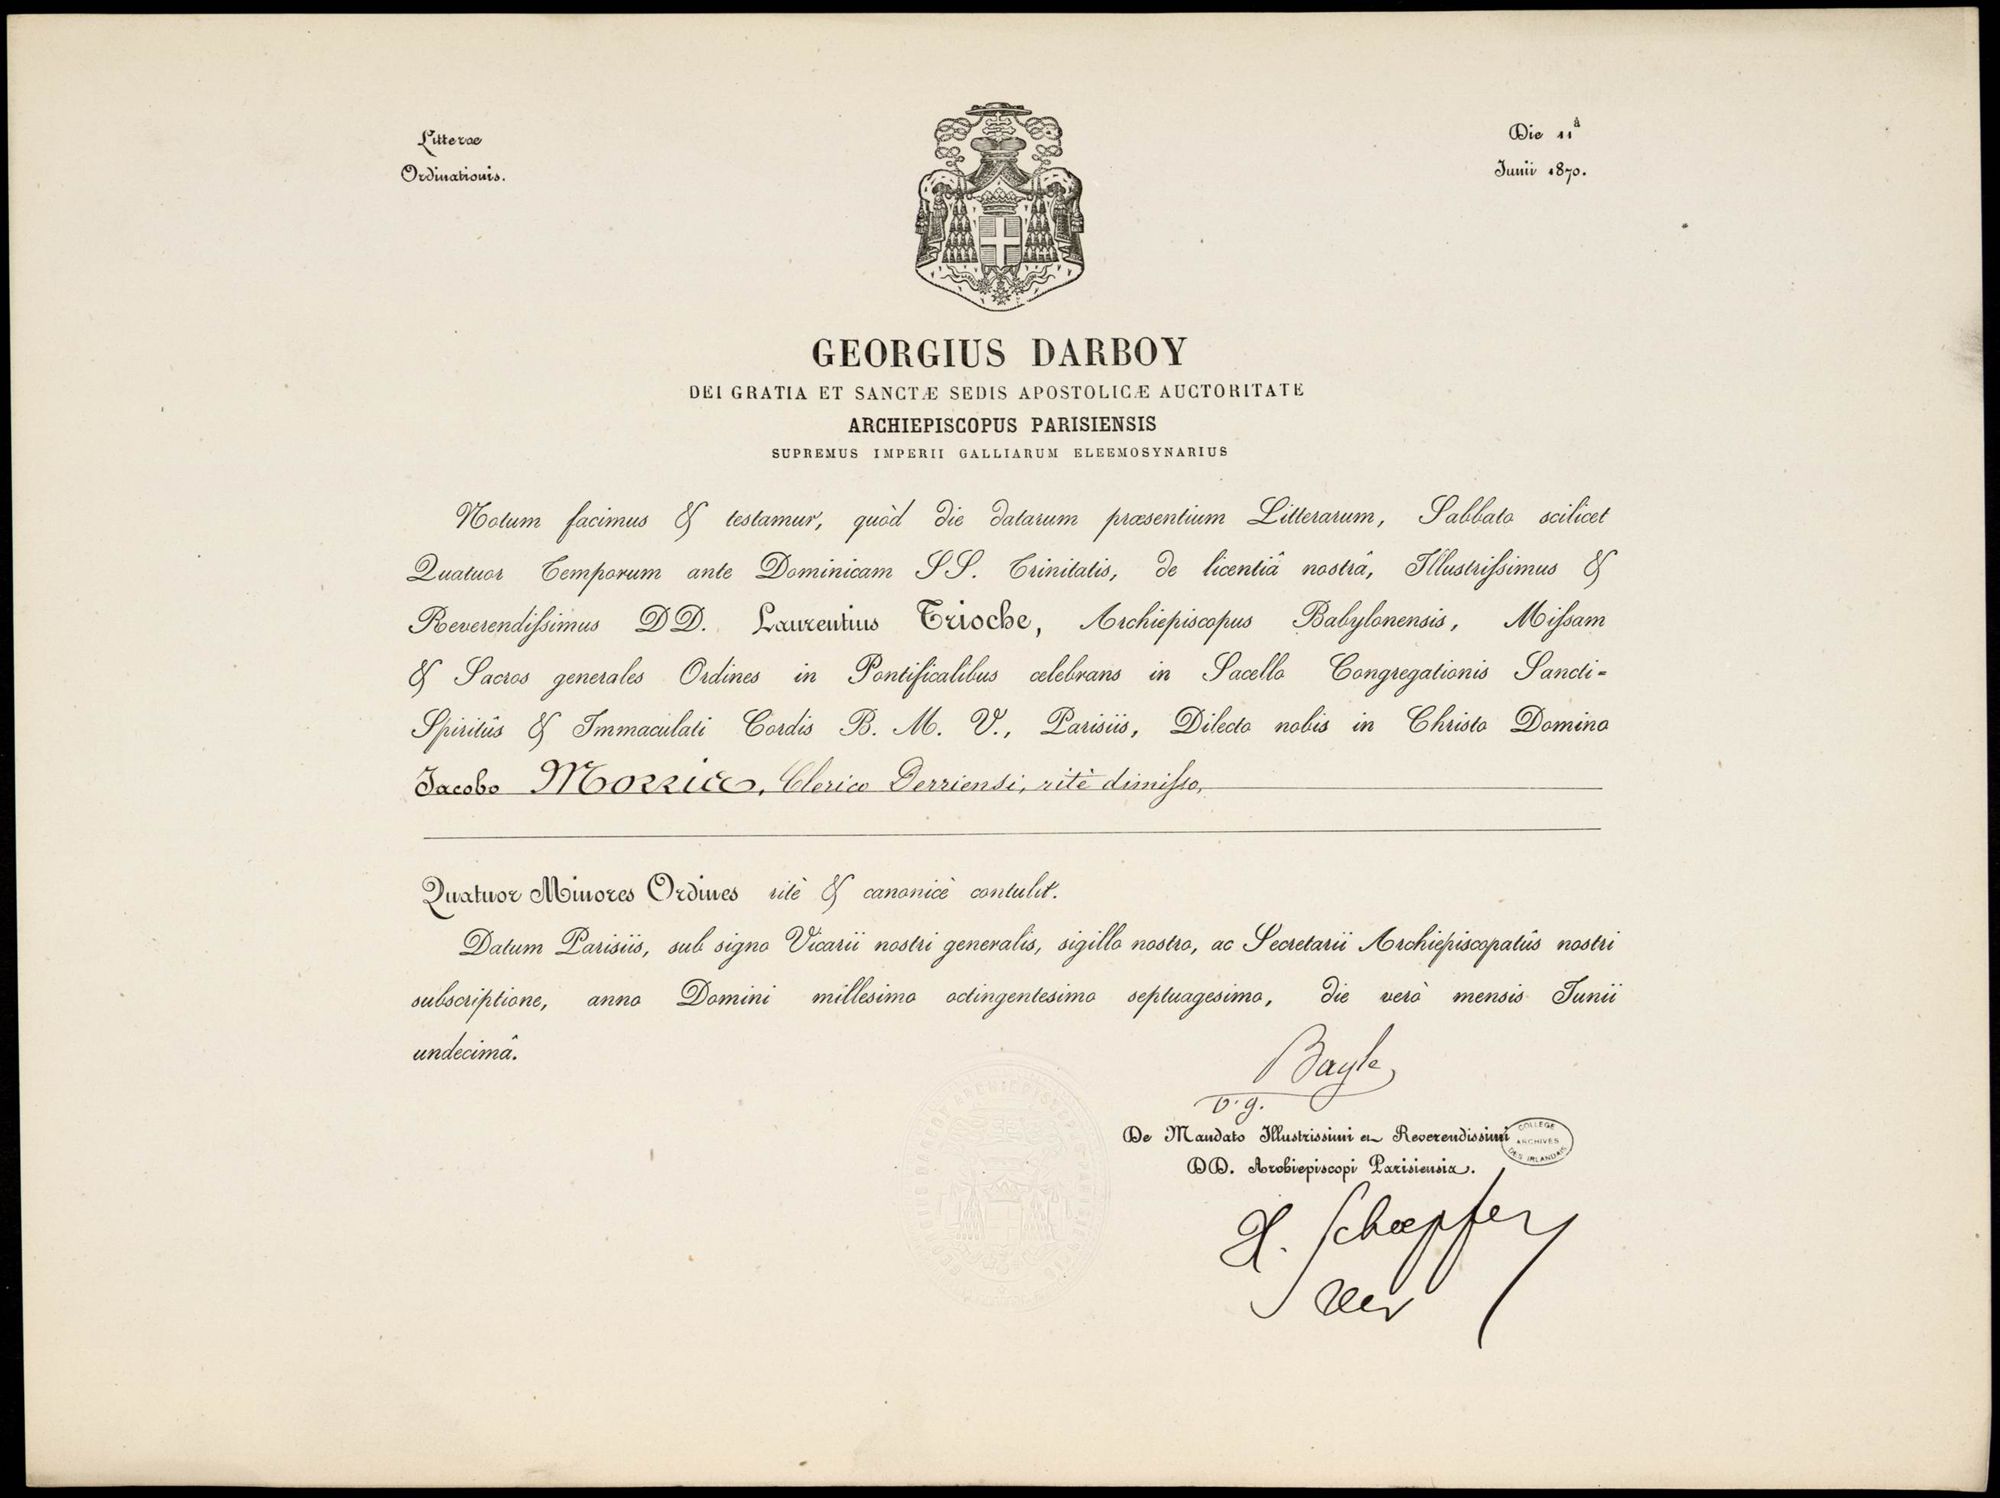 Litterae
Ordinationis.
Die 11ª
Junii 1870.
GEORGIUS DARBOY
DEI GRATIA ET SANCTÆ SEDIS APOSTOLICÆ AUCTORITATE
ARCHIEPISCOPUS PARISIENSIS
SUPREMUS IMPERII GALLIARUM ELEEMOSYNARIUS
Notum facimus & testamur, quòd die datarum præsentium Litterarum, Sabbato scilicet
Quatuor Temporum ante Dominicam SS. Trinitatis, de licentiâ nostrâ, Illustrissimus &
Reverendissimus DD. Laurentius Trioche, Archiepiscopus Babylonensis, Missam
& Sacros generales Ordines in Pontificalibus celebrans in Sacello Congregationis Sancti-
Spiritûs & Immaculati Cordis B. M. V., Parisiis, Dilecto nobis in Christo Domino
Jacobo Clerico Derriensi, ritè dimisso,
Quatuor Minores Ordines ritè & canonicè contulit.
Datum Parisiis, sub signo Vicarii nostri generalis, sigillo nostro, ac Secretarii Archiepiscopatûs nostri
subscriptione, anno Domini millesimo octingentesimo septuagesimo, die verò mensis Junii
undecimâ.
Bayle
v. g.
De Mandato Illustrissimi et Reverendissimi
DD. Archiepiscopi Parisiensis.
COLLEGE
ARCHIVES
DES IRLANDAIS
H. Schœpfer